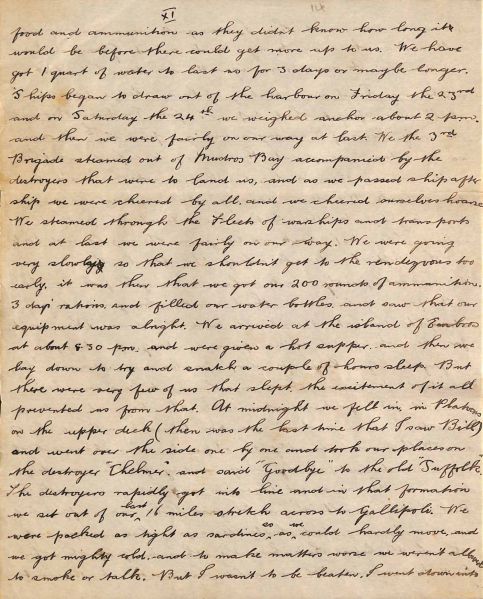 XI
food and ammunition as they didn't know how long it
would be before there could get more up to us. We have
got 1 quart of water to last us for 3 days or maybe longer.
Ships began to draw out of the harbour on Friday the 23rd
and on Saturday the 24th we weighed anchor about 2 p.m.
and then we were fairly on our way at last. We the 3rd
Brigade steamed out of Mudros Bay accompanied by the
destroyers that were to land us, and as we passed ship after
ship we were cheered by all, and we cheered ourselves hoarse
We steamed through the Fleets of warships and transports
and at last we were fairly on our way. We were going
very slowly so that we shouldn't get to the rendezvous too
early, it was then that we got our 200 rounds of ammunition,
3 days rations, and filled our water bottles, and saw that our
equipment was alright. We arrived at the island of Imbros
at about 8.30 p.m. and were given a hot supper. and then we
lay down to try and snatch a couple of hours sleep. But
there were very few of us that slept, the excitement of it all
prevented us from that. At midnight we fell in, in Platoons
on the upper deck (then was the last time that I saw Bill)
and went over the side one by one and took our places on
the destroyer "Chelmer", and said "Goodbye" to the old "Suffolk".
The destroyers rapidly got into line and in that formation
we set out of our last 16 miles stretch across to Gallipoli. We
were packed as tight as sardines, so as we could hardly move, and
we got mighty cold, and to make matters worse we weren't allowed
to smoke or talk. But I wasn't to be beaten, I went down into